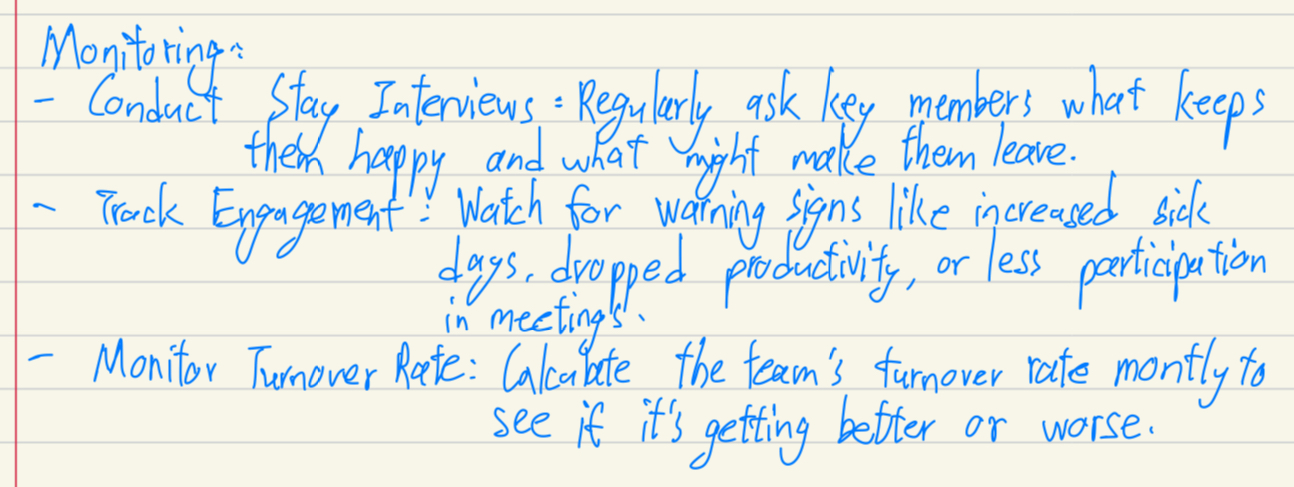 Monitoring:
- Conduct Stay Interviews: Regularly ask key members what keeps
them happy and what might make them leave.
- Track Engagement: Watch for warning signs like increased sick
days, dropped productivity, or less participation
in meetings.
- Monitor Turnover Rate: Calculate the team's turnover rate montly to
see if it's getting better or worse.